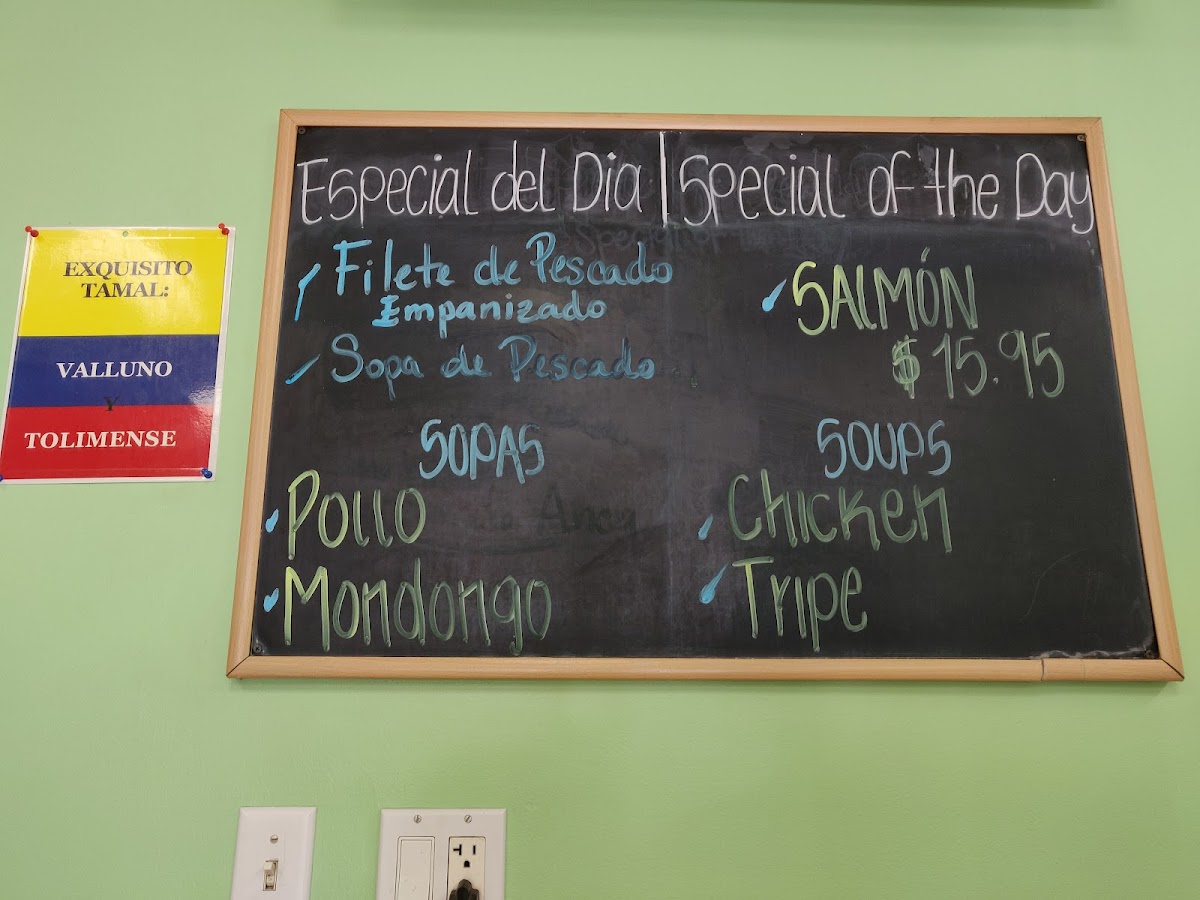 EXQUISITO
TAMAL:
VALLUNO
Y
TOLIMENSE
Especial del Dia | Special of the Day
Filete de Pescado
Empanizado
Sopa de Pescado
SALMÓN
$15.95
SOPAS
Pollo
Mondongo
SOUPS
Chicken
Tripe